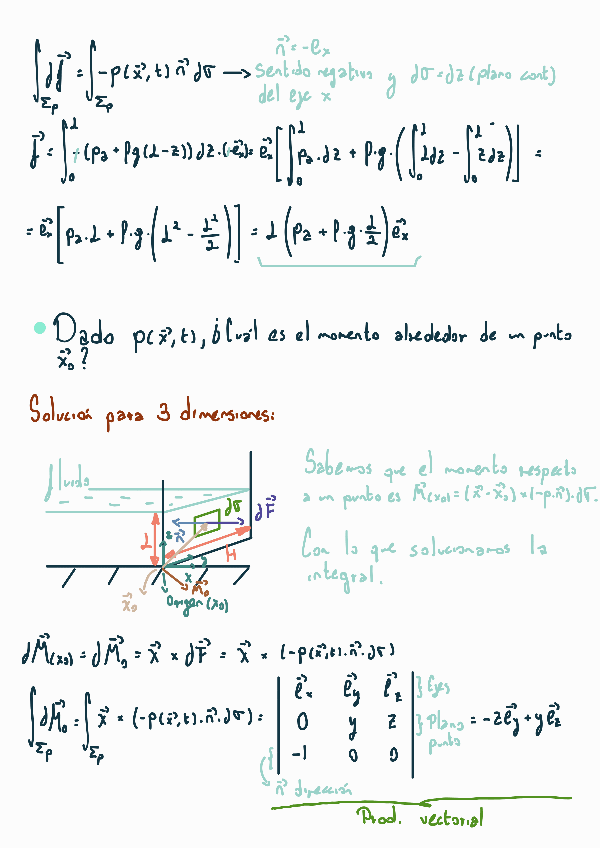 ∫_Σp d𝑓⃗ = ∫_Σp -p(x⃗,t) n⃗ dσ → n⃗ = -e_x
Sentido negativo y dσ = dz (plano cont)
del eje x
f⃗ = ∫₀^L +(p₂ + ρg(L-z)) dz·(+e⃗x) = e⃗x [∫₀^L p₂·dz + ρ·g·(∫₀^L L dz - ∫₀^L z dz)] =
= e⃗x [p₂·L + ρ·g·(L² - L²/2)] = L (p₂ + ρ·g·L/2) e⃗x
Dado p(x⃗,t), ¿Cuál es el momento alrededor de un punto
x⃗₀?
Solución para 3 dimensiones:
fluido
dσ
dF⃗
x⃗
L
z
H
y
x
n⃗₀
x⃗₀
Origen (x₀)
Sabemos que el momento respecto
a un punto es M⃗(x₀) = (x⃗ - x⃗₀) × (-p·n⃗)·dσ.
Con lo que solucionamos la
integral.
dM⃗(x₀) = dM⃗₀ = x⃗ × dF⃗ = x⃗ × (-p(x⃗,t)·n⃗·dσ)
∫_Σp dM⃗₀ = ∫_Σp x⃗ × (-p(x⃗,t)·n⃗·dσ) = | e⃗x e⃗y e⃗z | } Ejes
| 0 y z | } Plano punto = -z e⃗y + y e⃗z
| -1 0 0 |
n⃗ dirección
Prod. vectorial